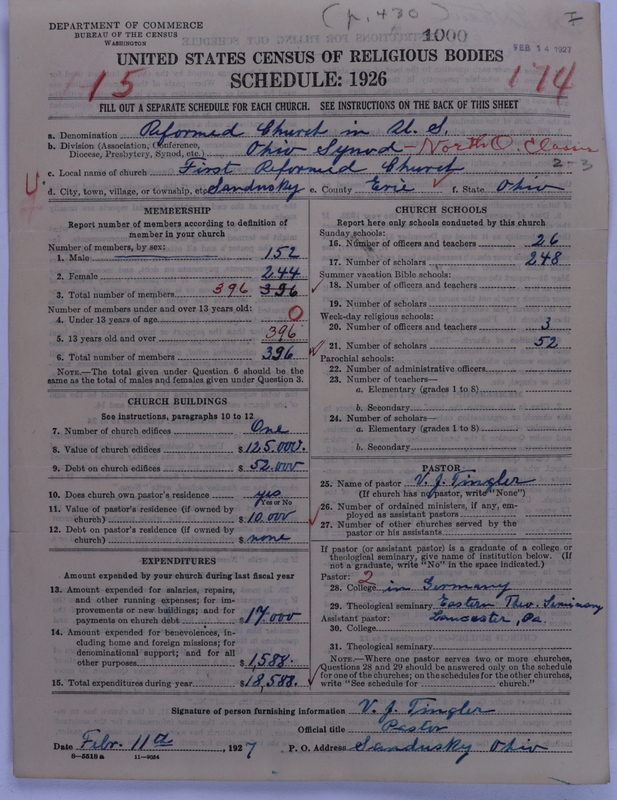 (p. 430)
I
DEPARTMENT OF COMMERCE
BUREAU OF THE CENSUS
WASHINGTON
1000
FEB 14 1927
UNITED STATES CENSUS OF RELIGIOUS BODIES
SCHEDULE: 1926
15
174
FILL OUT A SEPARATE SCHEDULE FOR EACH CHURCH. SEE INSTRUCTIONS ON THE BACK OF THIS SHEET
a. Denomination Reformed Church in U. S.
b. Division (Association, Conference, Diocese, Presbytery, Synod, etc.) Ohio Synod - North O. Classis
2-3
c. Local name of church First Reformed Church
d. City, town, village, or township, etc. Sandusky e. County Erie f. State Ohio
MEMBERSHIP
Report number of members according to definition of
member in your church
Number of members, by sex:
1. Male 152
2. Female 244
3. Total number of members 396 396
Number of members under and over 13 years old:
4. Under 13 years of age 0
5. 13 years old and over 396
6. Total number of members 396
NOTE.—The total given under Question 6 should be the
same as the total of males and females given under Question 3.
CHURCH BUILDINGS
See instructions, paragraphs 10 to 12
7. Number of church edifices One
8. Value of church edifices $ 125.000.
9. Debt on church edifices $ 52.000
10. Does church own pastor's residence yes
Yes or No
11. Value of pastor's residence (if owned by
church) $ 10.000
12. Debt on pastor's residence (if owned by
church) $ none
EXPENDITURES
Amount expended by your church during last fiscal year
13. Amount expended for salaries, repairs,
and other running expenses; for im-
provements or new buildings; and for
payments on church debt $ 17.000
14. Amount expended for benevolences, in-
cluding home and foreign missions; for
denominational support; and for all
other purposes $ 1,588.
15. Total expenditures during year $ 18,588.
CHURCH SCHOOLS
Report here only schools conducted by this church
Sunday schools:
16. Number of officers and teachers 26
17. Number of scholars 248
Summer vacation Bible schools:
18. Number of officers and teachers
19. Number of scholars
Week-day religious schools:
20. Number of officers and teachers 3
21. Number of scholars 52
Parochial schools:
22. Number of administrative officers
23. Number of teachers—
a. Elementary (grades 1 to 8)
b. Secondary
24. Number of scholars—
a. Elementary (grades 1 to 8)
b. Secondary
PASTOR
25. Name of pastor V. J. Tingler
(If church has no pastor, write "None")
26. Number of ordained ministers, if any, em-
ployed as assistant pastors
27. Number of other churches served by the
pastor or his assistants
If pastor (or assistant pastor) is a graduate of a college or
theological seminary, give name of institution below. (If
not a graduate, write "No" in the space indicated.)
Pastor: 2
28. College in Germany
29. Theological seminary Eastern Theo. Seminary
Assistant pastor: Lancaster, Pa.
30. College
31. Theological seminary
NOTE.—Where one pastor serves two or more churches,
Questions 28 and 29 should be answered only on the schedule
for one of the churches; on the schedules for the other churches,
write "See schedule for church."
Signature of person furnishing information V. J. Tingler
Official title Pastor
Date Febr. 11th, 1927 P. O. Address Sandusky Ohio
8-5518a 11-9054